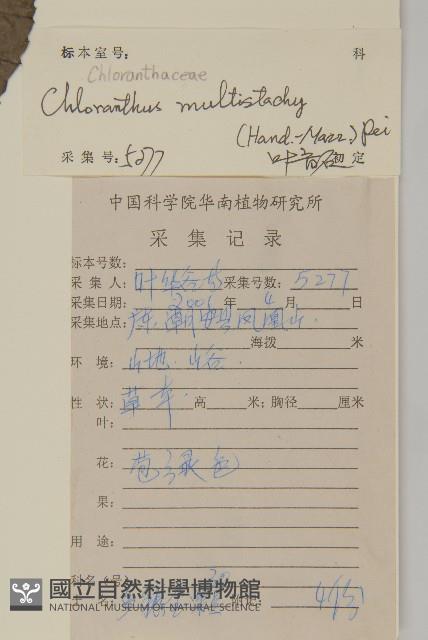 标本室号: 科
Chloranthaceae
Chloranthus multistachy
(Hand.-Mazz.) Pei
采集号: 5277 叶 初定
中国科学院华南植物研究所
采集记录
标本号数:
采集人: 叶 采集号数: 5277
采集日期: 2001 年 4 月 日
采集地点: 广东潮安县凤凰山.
海拨 米
环境: 山地.山谷.
性状: 草本. 高 米; 胸径 厘米
叶:
花: 苞绿色
果:
用途:
科名(号)
國立自然科學博物館
NATIONAL MUSEUM OF NATURAL SCIENCE
4份